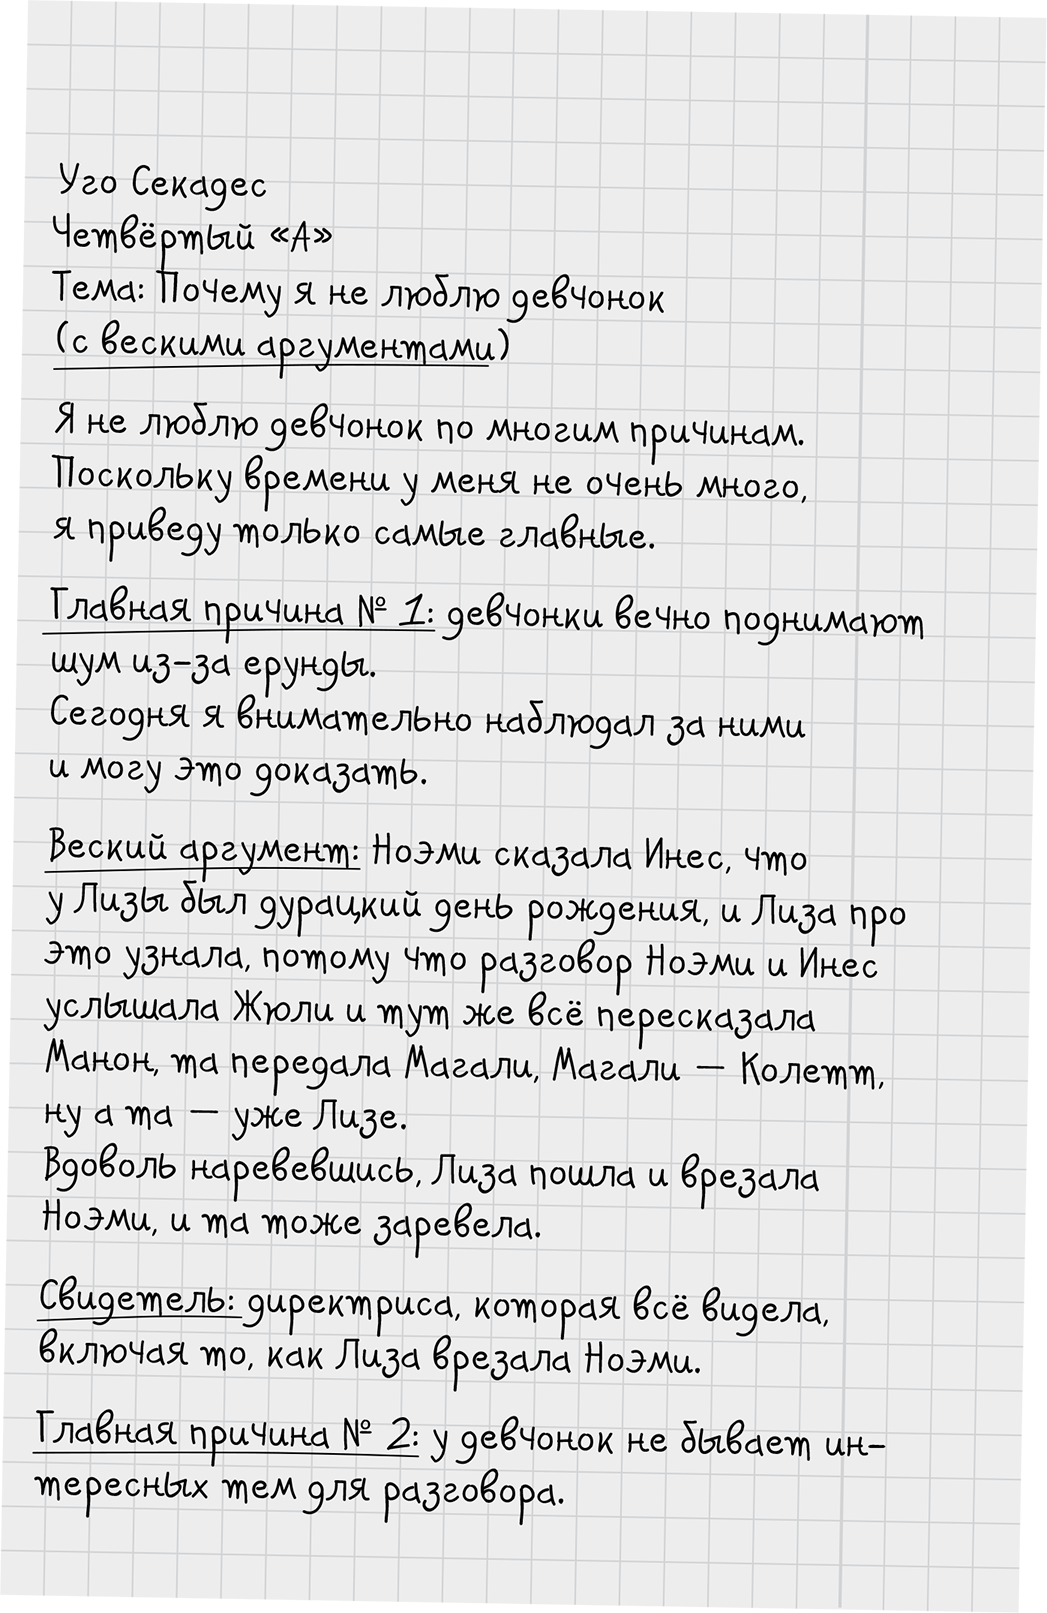 Уго Секадес
Четвёртый «А»
Тема: Почему я не люблю девчонок
(с вескими аргументами)
Я не люблю девчонок по многим причинам.
Поскольку времени у меня не очень много,
я приведу только самые главные.
Главная причина № 1: девчонки вечно поднимают
шум из-за ерунды.
Сегодня я внимательно наблюдал за ними
и могу это доказать.
Веский аргумент: Ноэми сказала Инес, что
у Лизы был дурацкий день рождения, и Лиза про
это узнала, потому что разговор Ноэми и Инес
услышала Жюли и тут же всё пересказала
Манон, та передала Магали, Магали — Колетт,
ну а та — уже Лизе.
Вдоволь наревевшись, Лиза пошла и врезала
Ноэми, и та тоже заревела.
Свидетель: директриса, которая всё видела,
включая то, как Лиза врезала Ноэми.
Главная причина № 2: у девчонок не бывает ин-
тересных тем для разговора.